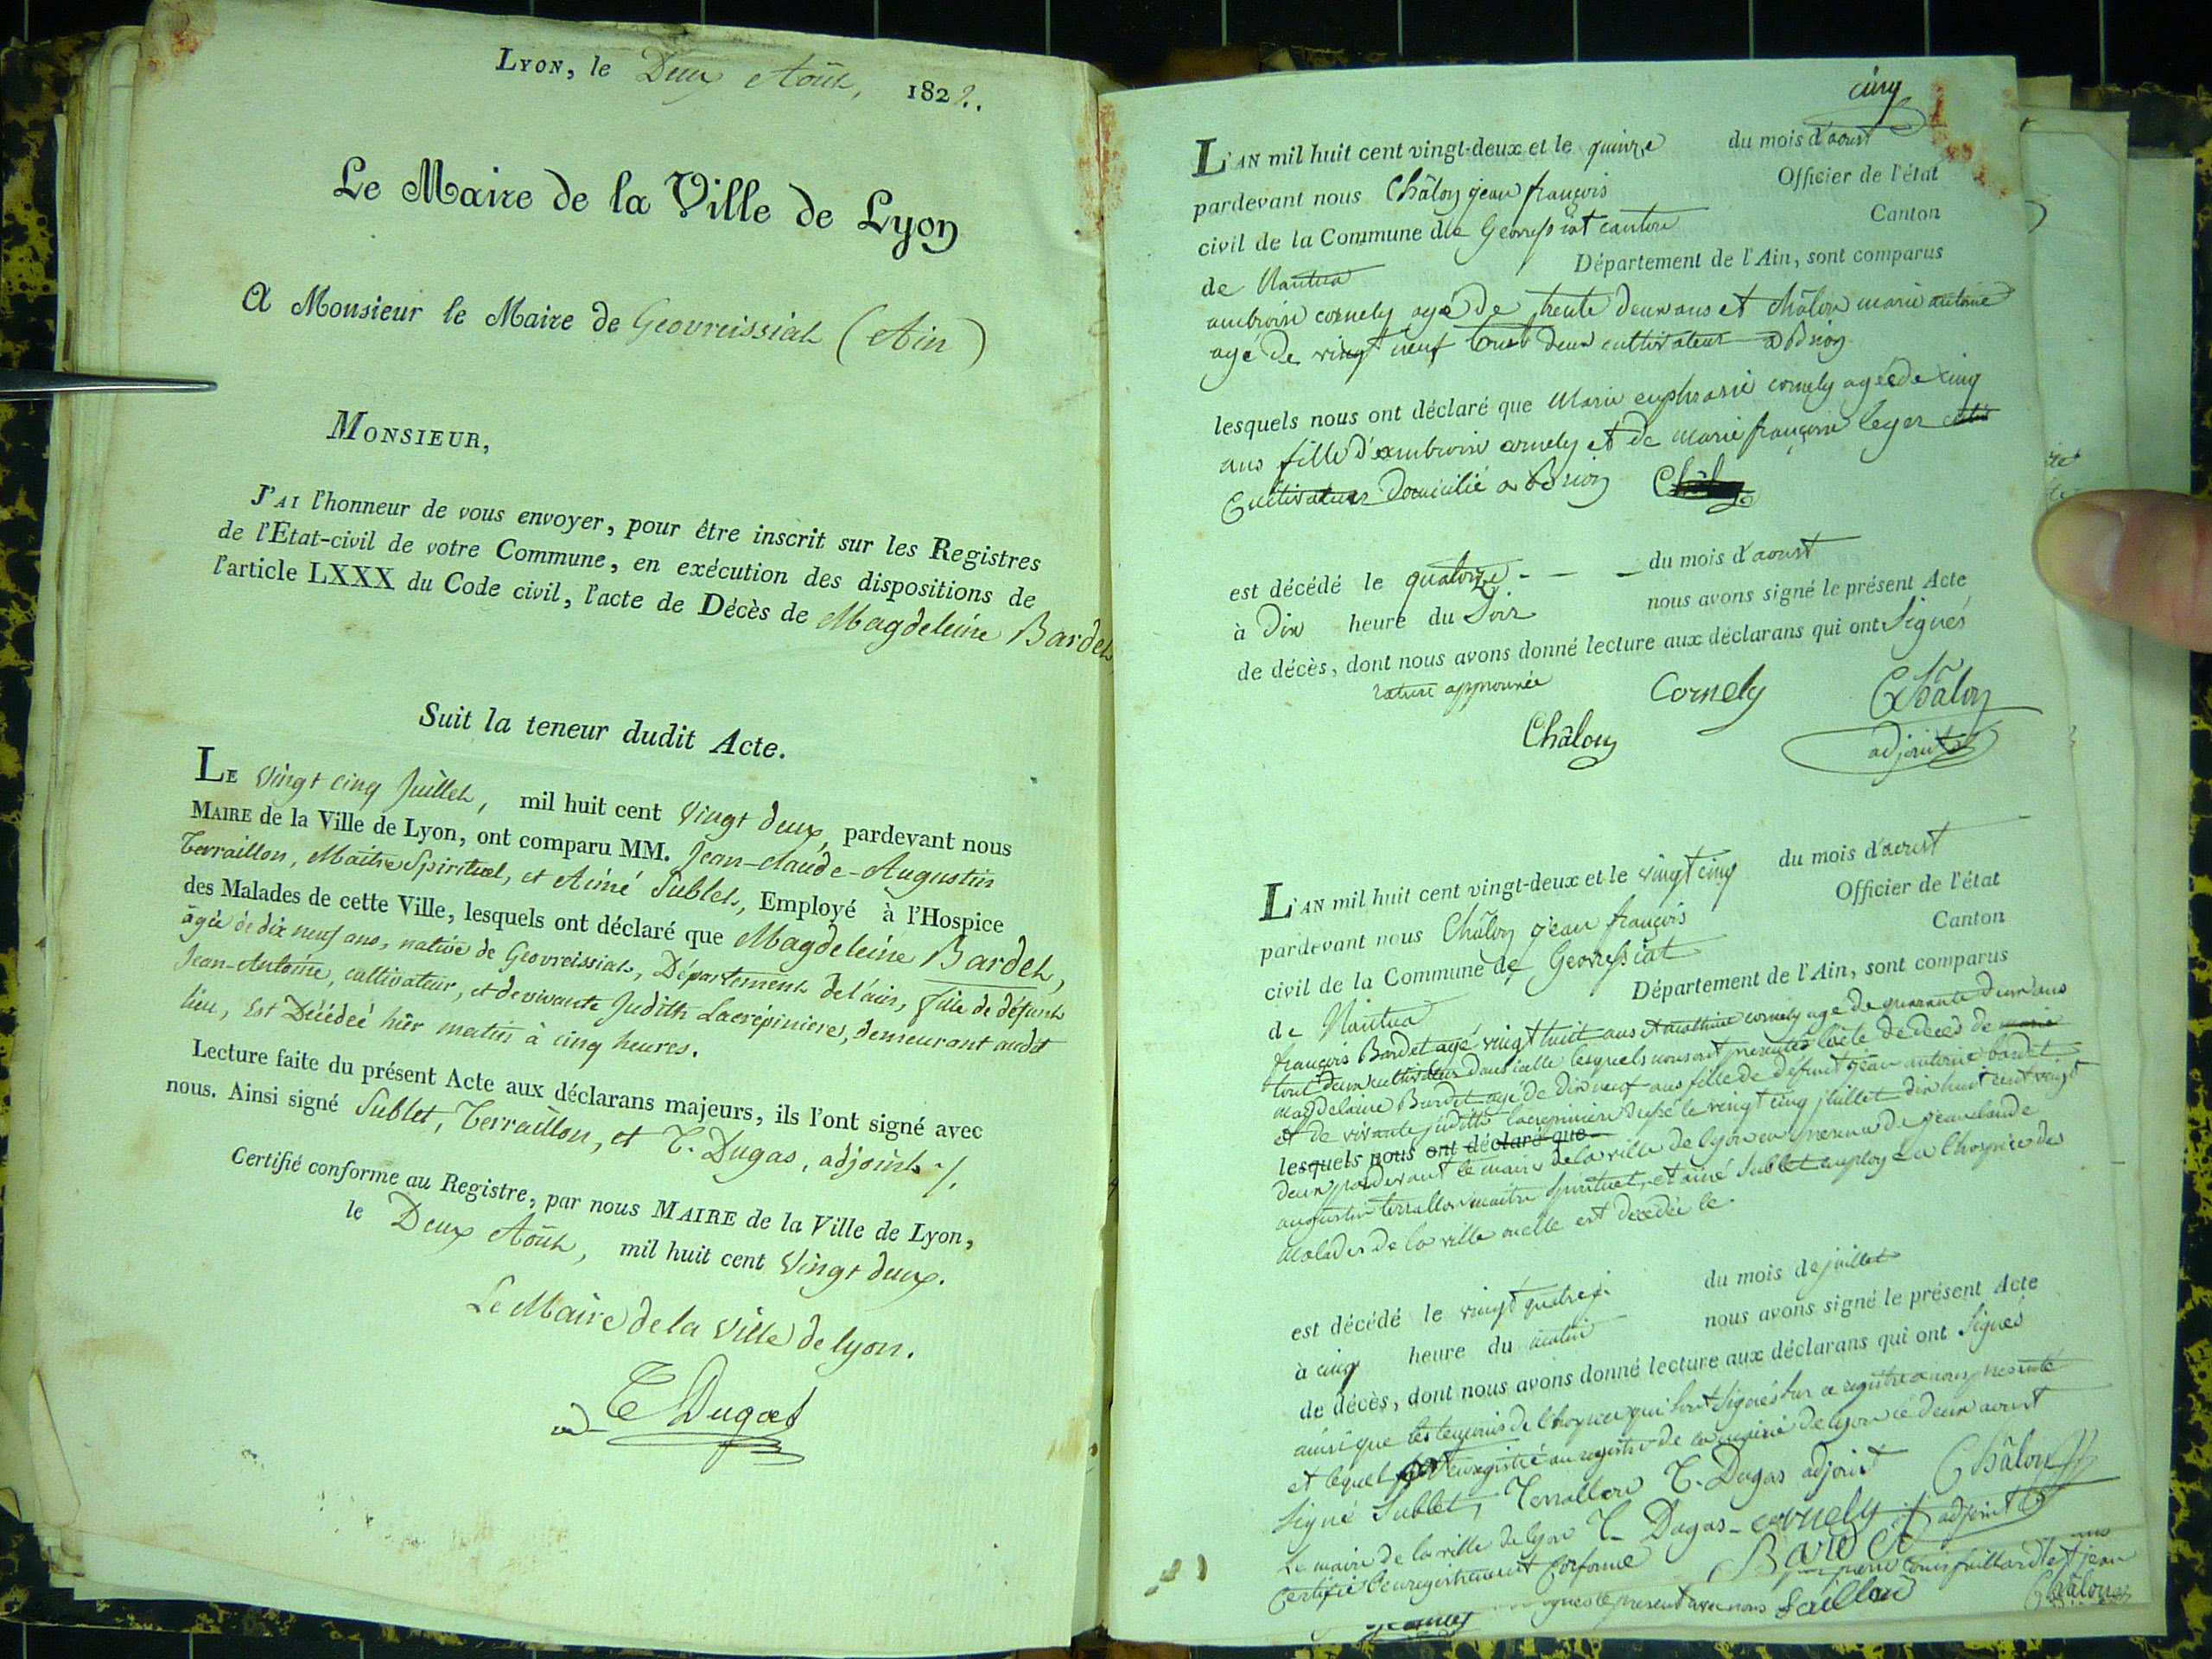 Lyon, le Deux Août, 1822.
Le Maire de la Ville de Lyon
A Monsieur le Maire de Geovreissiat (Ain)
Monsieur,
J'ai l'honneur de vous envoyer, pour être inscrit sur les Registres
de l'Etat-civil de votre Commune, en exécution des dispositions de
l'article LXXX du Code civil, l'acte de Décès de Magdeleine Bardet
Suit la teneur dudit Acte.
Le Vingt cinq Juillet, mil huit cent Vingt deux, pardevant nous
Maire de la Ville de Lyon, ont comparu MM. Jean-Claude-Augustin
Terraillon, Maitre Spirituel, et Aimé Sublet, Employé à l'Hospice
des Malades de cette Ville, lesquels ont déclaré que Magdeleine Bardet,
âgée de dix neuf ans, native de Geovreissiat, Département de l'ain, fille de défunt
Jean-Antoine, cultivateur, et de vivante Judith Lacrépinieres, demeurant audit
lieu, Est Décédée hier matin à cinq heures.
Lecture faite du présent Acte aux déclarans majeurs, ils l'ont signé avec
nous. Ainsi signé Sublet, Terraillon, et T. Dugas, adjoint ./.
Certifié conforme au Registre, par nous Maire de la Ville de Lyon,
le Deux Août, mil huit cent Vingt deux.
Le Maire de la Ville de lyon.
T Dugas
cinq
L'an mil huit cent vingt-deux et le quinze du mois d'aoust
pardevant nous Châlon jean françois Officier de l'état
civil de la Commune de Geovressiat canton Canton
de Nantua Département de l'Ain, sont comparus
ambroise cornely agé de trente deux ans et châlon marie antoine
agé de vingt neuf tout deux cultivateur a Brion
lesquels nous ont déclaré que Marie euphrasie cornely agée de cinq
ans fille d'ambroise cornely et de marie françoise leger
Cultivateur domicilié a Brion
est décédé le quatorze - - - du mois d'aoust
à dix heure du Soir nous avons signé le présent Acte
de décès, dont nous avons donné lecture aux déclarans qui ont Signés
rature approuvée Cornely Châlon
Châlon adjoint
L'an mil huit cent vingt-deux et le vingt cinq du mois d'aoust
pardevant nous Châlon jean françois Officier de l'état
civil de la Commune de Geovressiat Canton
de Nantua Département de l'Ain, sont comparus
françois Bardet agé vingt huit ans et mathieu cornely agé de quarante deux ans
tout deux cultivateur lesquels nous ont presentés l'acte de deces de marie
magdelaine Bardet agé de dix neuf ans fille de defunt jean antoine bardet
et de vivante judith lacrepiniere le vingt cinq juillet dix huit cent vingt
lesquels nous ont déclaré que
deux pardevant le maire de la ville de lyon en presence de jean claude
augustin terrallon maitre spirituel, et aimé Sublet employ a l'hospice des
malades de la ville ou elle est decedée le
est décédé le vingt quatre du mois de juillet
à cinq heure du matin nous avons signé le présent Acte
de décès, dont nous avons donné lecture aux déclarans qui ont Signés
ainsi que les temoins de l'hospice qui sont signés sur ce registre a nous presenté
et lequel enregistré au registre de la mairie de lyon le deux aoust
Signé Sublet, Terrallon T. Dugas adjoint Châlon
Le maire de la ville de lyon T. Dugas - cornely adjoint
Certifié l'enregistrement Conforme Bardet
le present avec nous Faillard Châlon